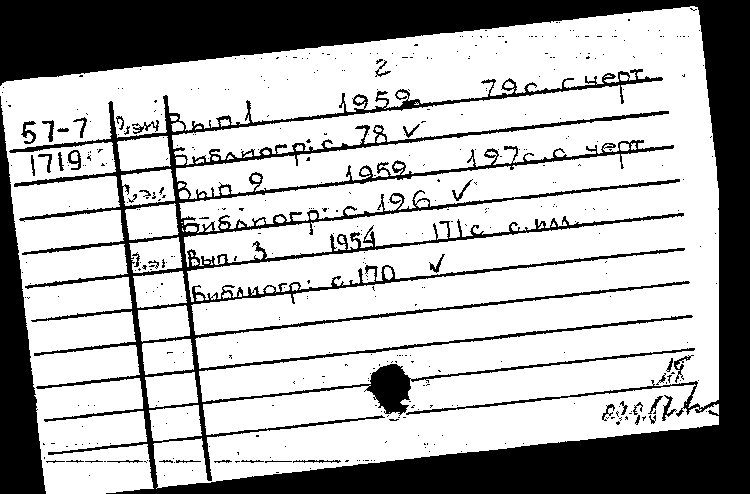 2
57-7 2.экз Вып.1 1952 79с. с черт.
1719 Библиогр: с. 78 ✓
2.экз Вып. 2 1952 197с. с черт
Библиогр: с. 196 ✓
2.эк Вып. 3 1954 171с с. илл.
Библиогр: с. 170 ✓